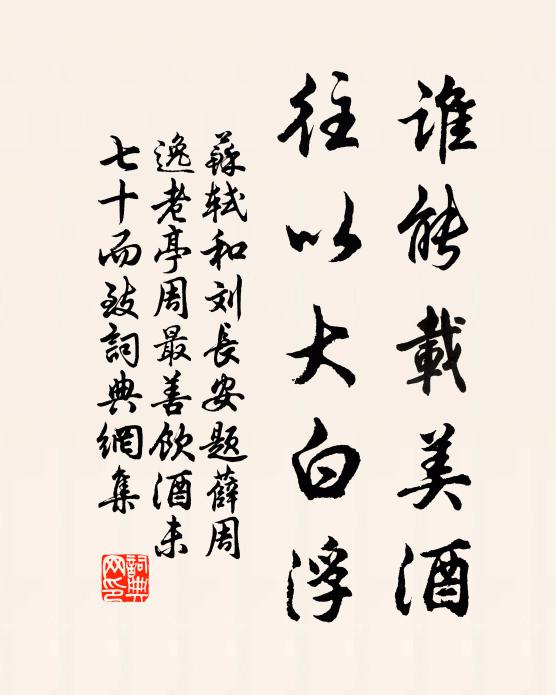 谁能載美酒
往以大白浮
蘇軾和刘長安题薛周
逸老亭周最善飲酒未
七十而致詞典網集
詞典网印